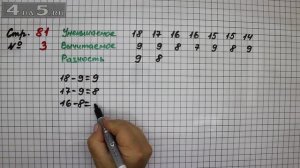 4DA5.RU
Стр. 81 Уменьшаемое 18 17 16 16 15 15 14
№ 3 Вычитаемое 9 9 8 7 9 8 9
Разность 9 8
18-9=9
17-9=8
16-8=